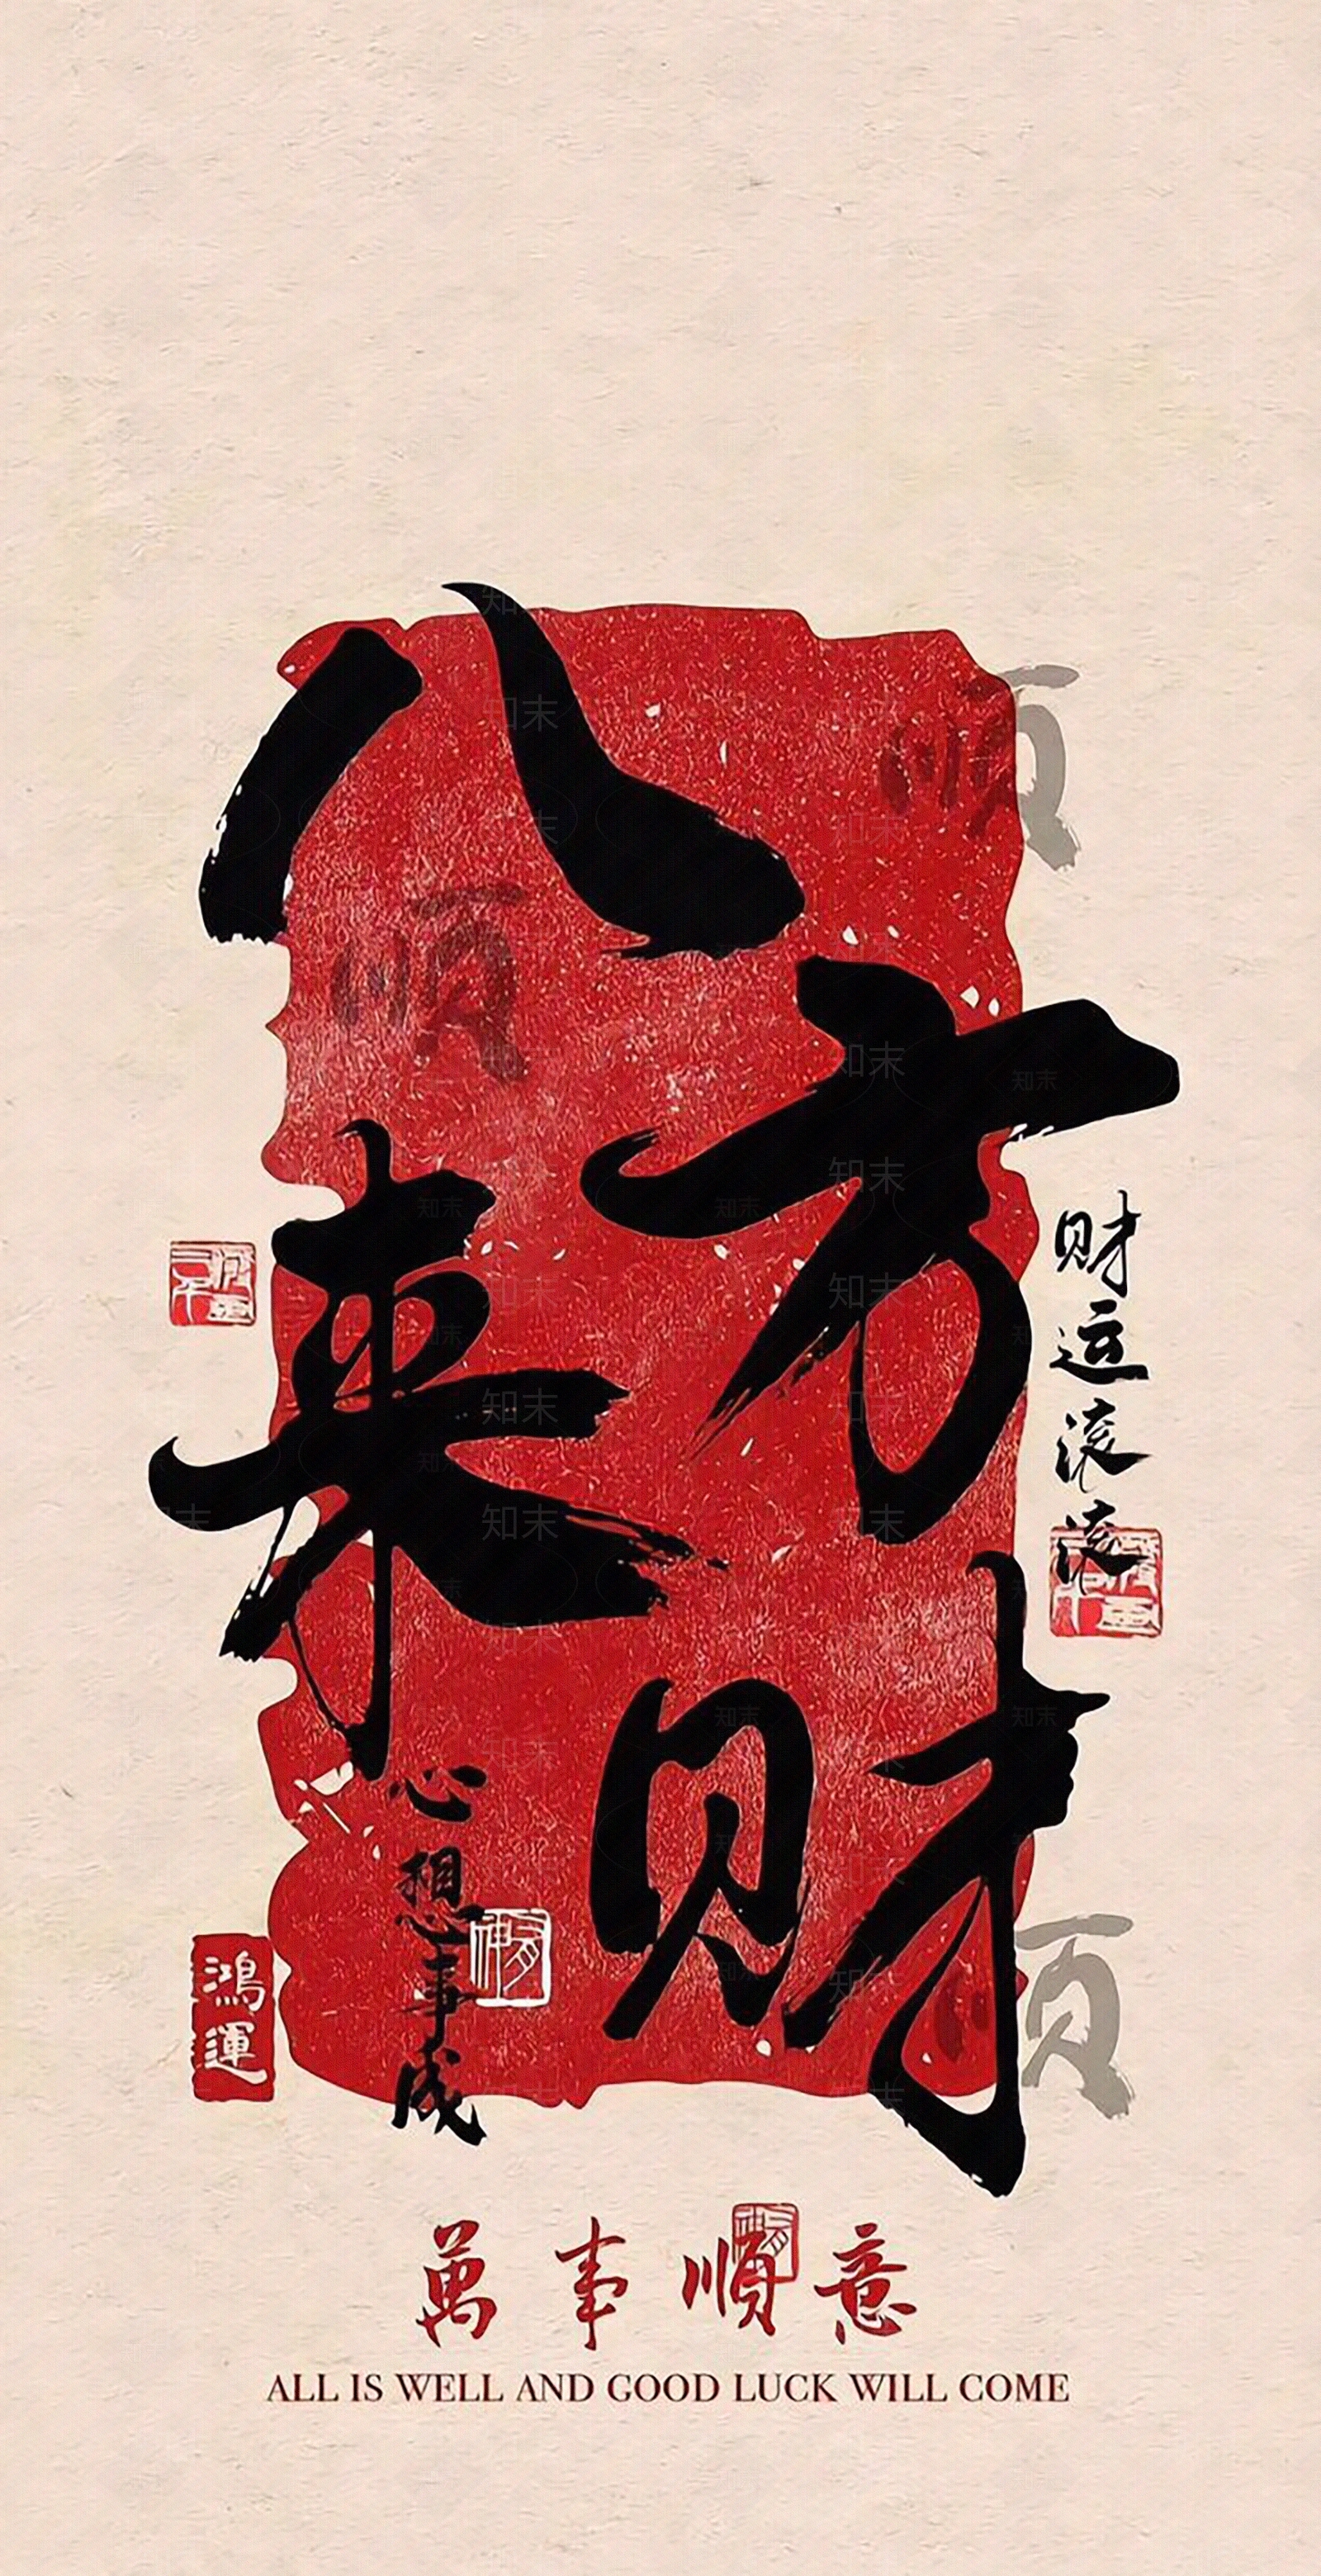 八方来财
顺
顺
财运滚滚
心想事成
鸿運
萬事順意
ALL IS WELL AND GOOD LUCK WILL COME
知末